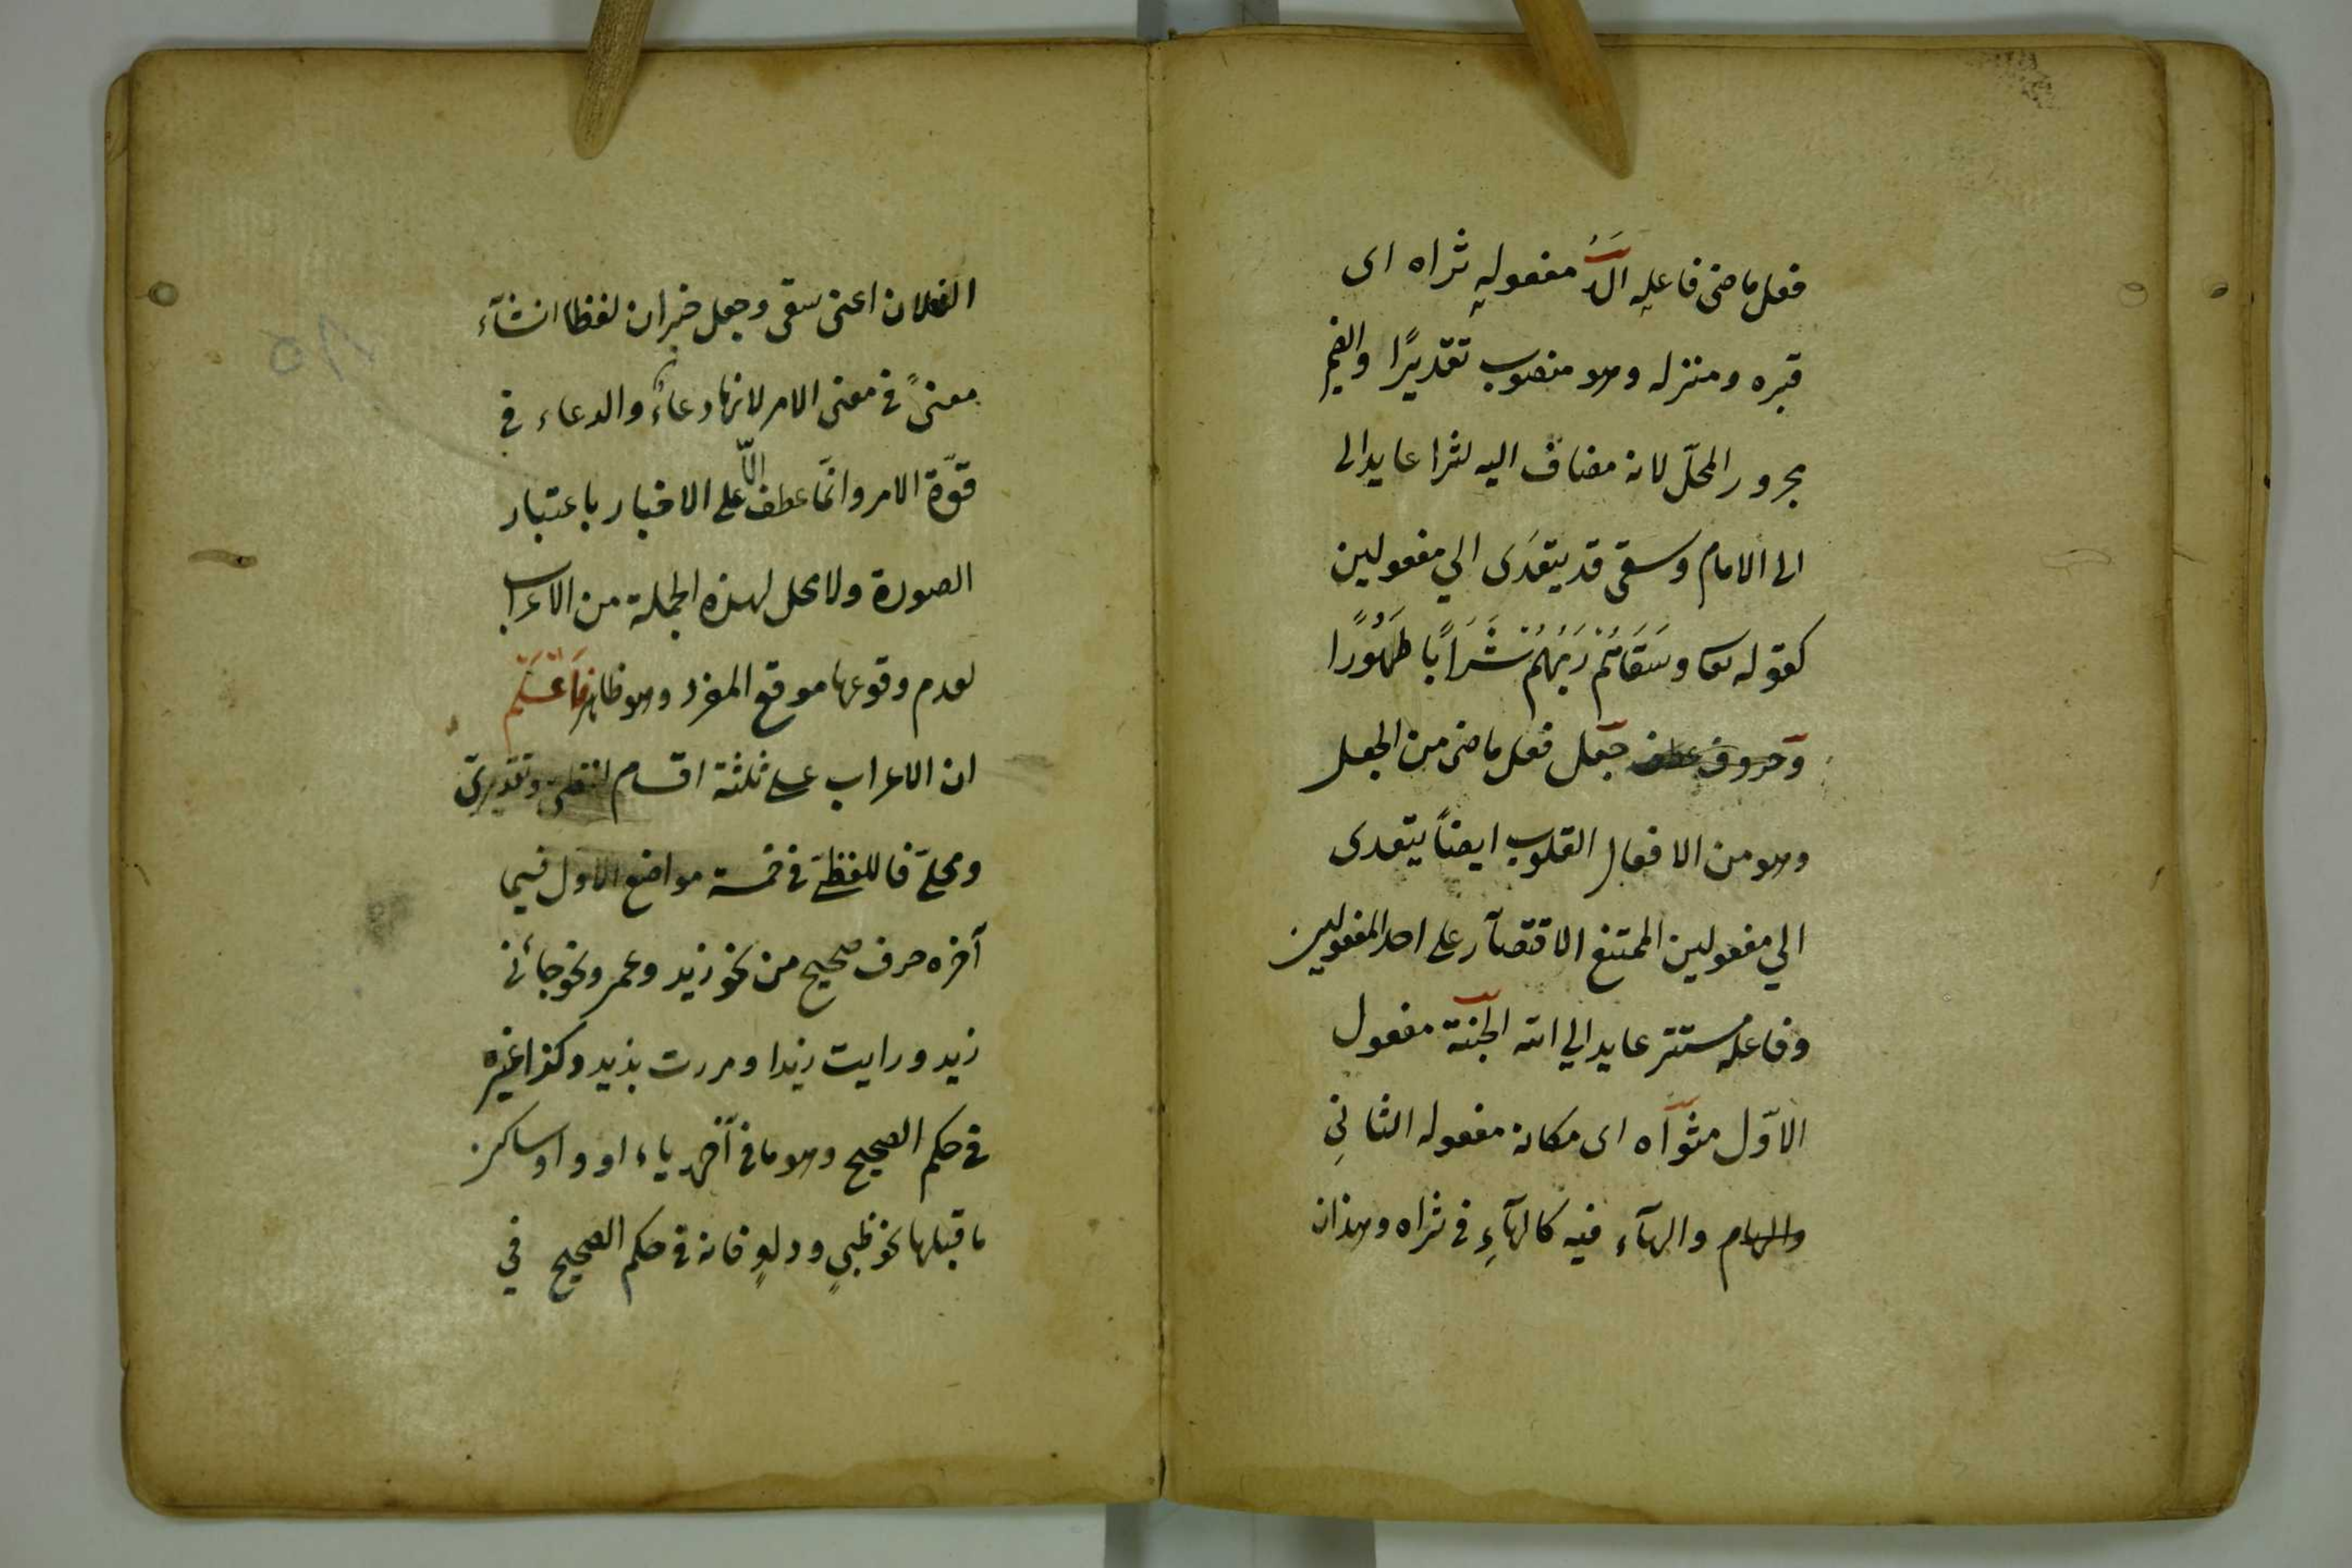 فعل ماضى فاعله الله مفعوله ثراه اى
قبره ومنزله وهو منصوب تقديرًا والضمير
مجرور المحلّ لانه مضاف اليه لثرا عايد الى
الى الامام وسقى قد يتعدى الي مفعولين
كقوله تعا وَسَقَاهُمْ رَبُّهُمْ شَرَابًا طَهُورًا
وحروف عطف جعل فعل ماضى من الجعل
وهو من الافعال القلوب ايضاً يتعدى
الي مفعولين الممتنع الاقتصار على احد المفعولين
وفاعله مستتر عايد الي الله الجنة مفعول
الاوّل مثوآه اى مكانه مفعوله الثاني
والهام والهآء فيه كالهآءِ فى ثراه وهذان
الفعلان اعنى سقى وجعل خبران لفظا انشآء
معنىً فى معنى الامر لانها دعاءٌ والدعاء فى
قوّة الامر وانّما عطف الّا على الاخبار باعتبار
الصورة ولا محل لهذه الجملة من الاعراب
لعدم وقوعها موقع المفرد وهو ظاهر فَاعْلَمْ
ان الاعراب على ثلثة اقسام لفظى وتقديرىّ
ومحلىّ فاللفظىّ فى خمسة مواضع الاول فيما
آخره حرف صحيح من نحو زيد وعمر ونحو جائنى
زيد ورايت زيدا ومررت بزيد وكذا غيره
فى حكم الصحيح وهو ما فى آخره ياء او واو ساكن
ما قبلها نحو ظبىٍ ودلوٍ فانه فى حكم الصحيح في